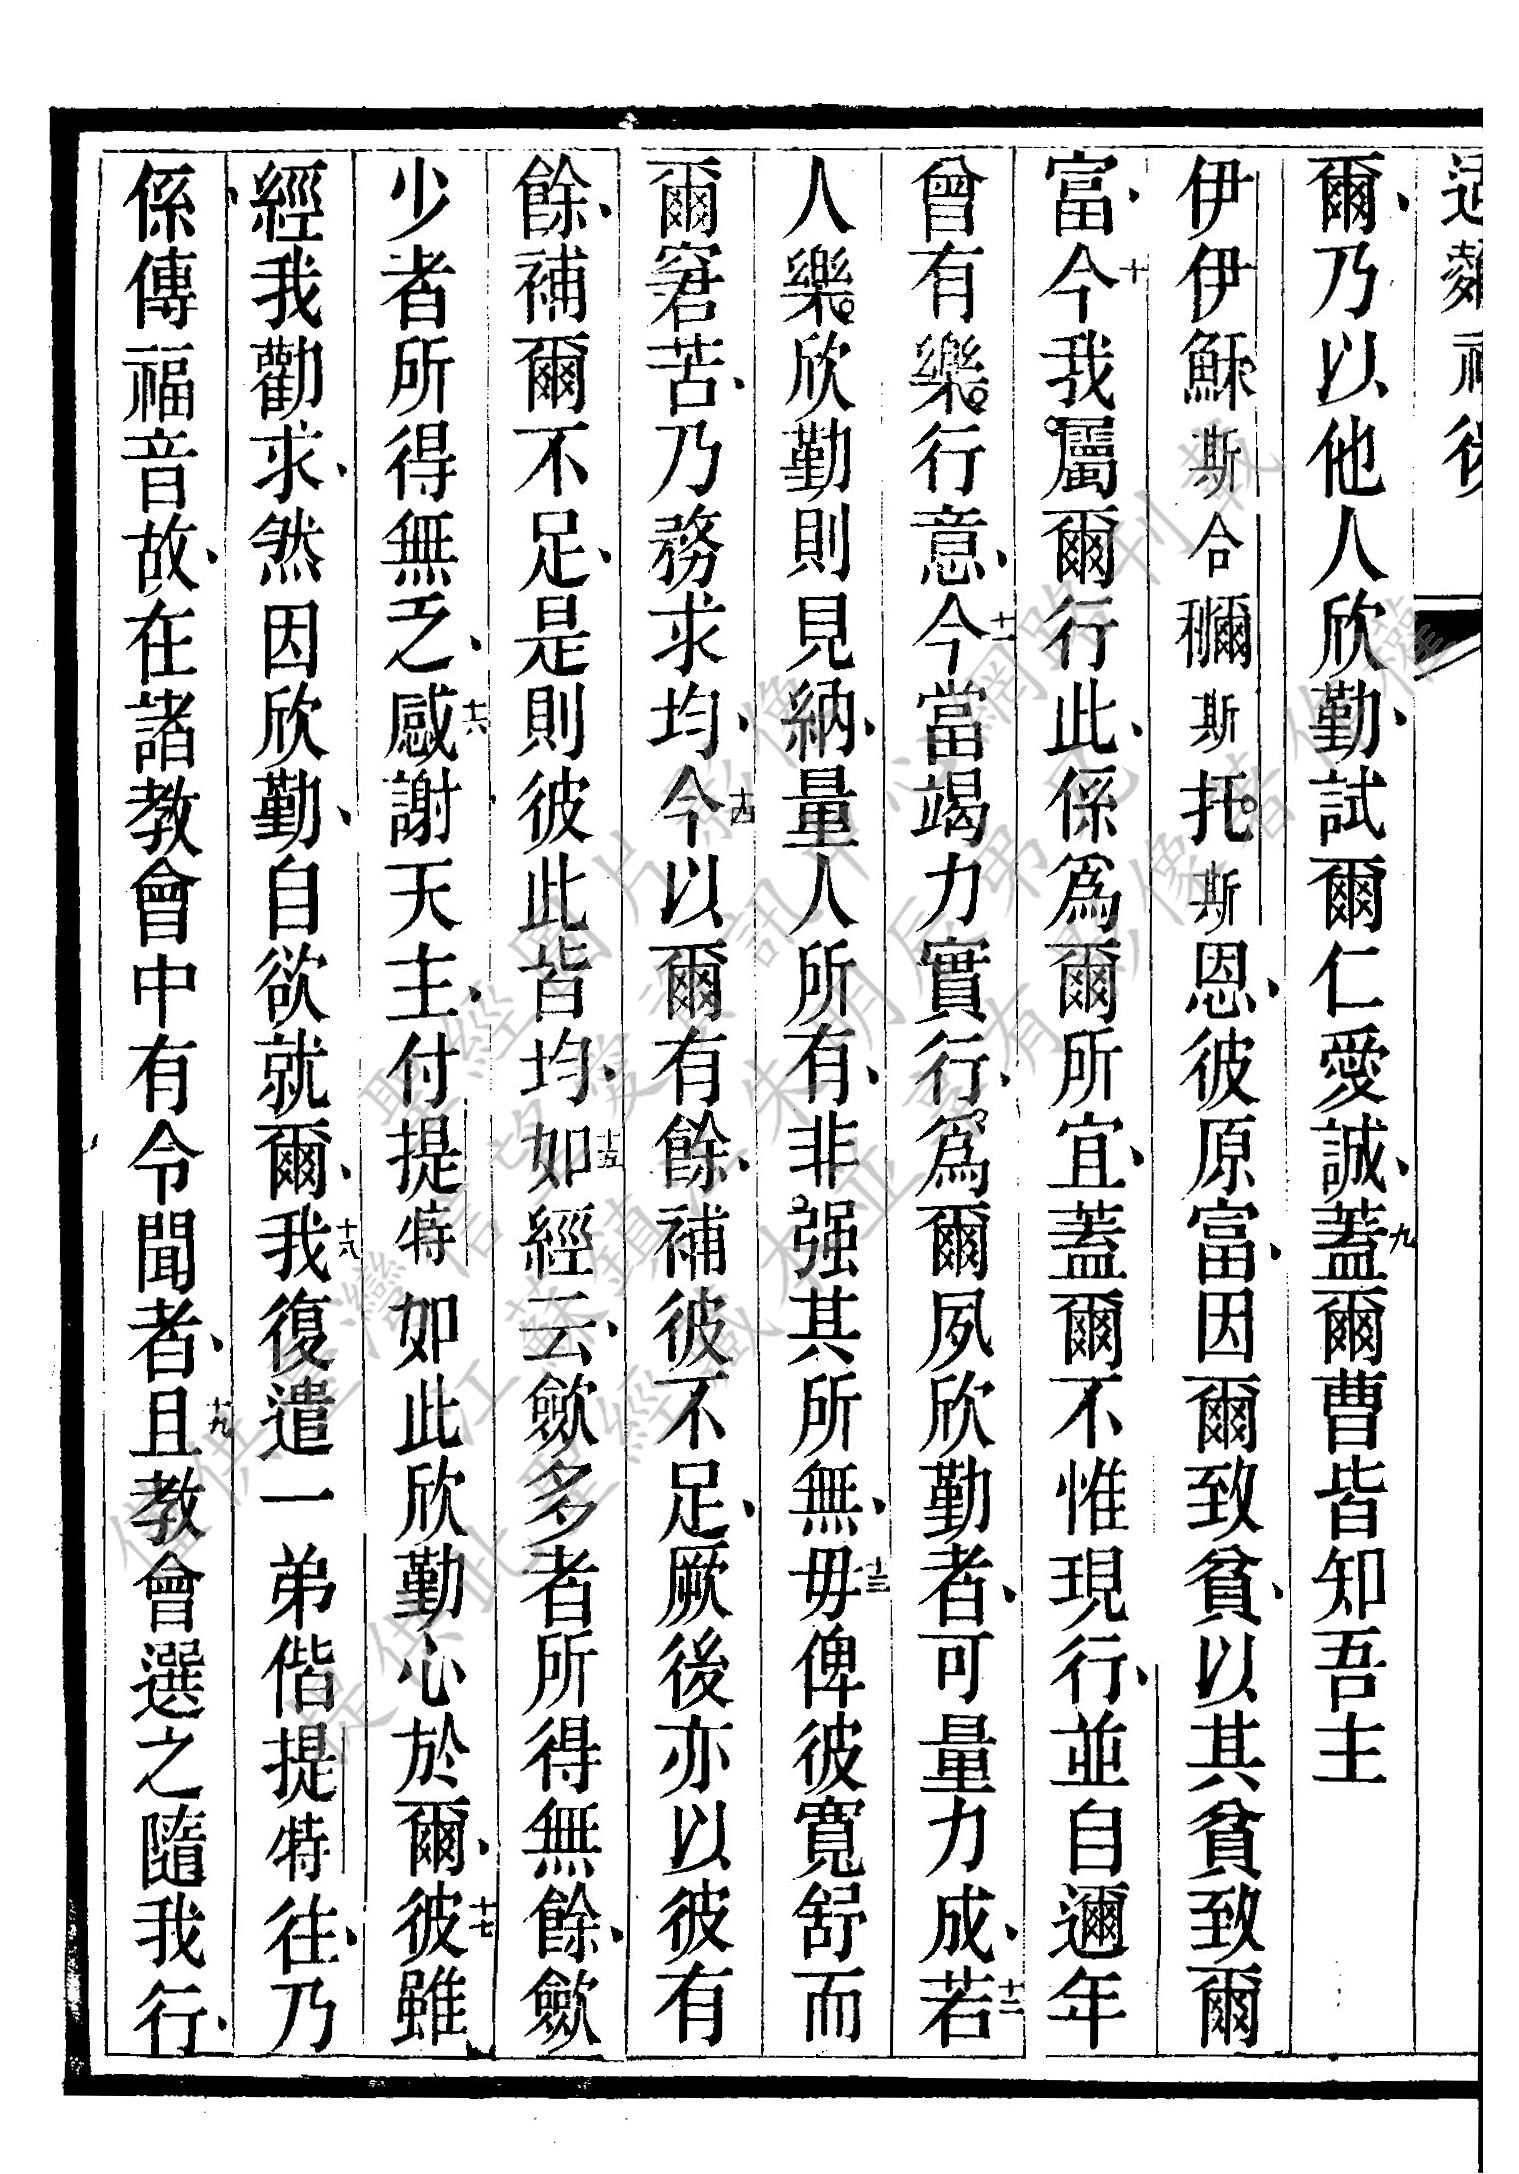 爾、乃以他人欣勤、試爾仁愛誠、九蓋爾曹皆知吾主
伊伊穌斯合穪斯托斯恩、彼原富、因爾致貧、以其貧致爾
富、十今我屬爾行此、係爲爾所宜、蓋爾不惟現行、並自邇年
曾有樂行意、十一今當竭力實行、爲爾夙欣勤者、可量力成、十二若
人樂欣勤則見納、量人所有、非强其所無、十三毋俾彼寬舒而
爾窘苦、乃務求均、十四今以爾有餘、補彼不足、厥後亦以彼有
餘、補爾不足、是則彼此皆均、十五如經云、斂多者所得無餘、斂
少者所得無乏、十六感謝天主、付提特如此欣勤心於爾、十七彼雖
經我勸求、然因欣勤、自欲就爾、十八我復遣一弟偕提特往、乃
係傳福音故、在諸教會中有令聞者、十九且教會選之隨我行、
僅供臺灣信望愛資訊中心網路刊載
聖經圖片影像
提供此聖經藏本並享有影像著作權